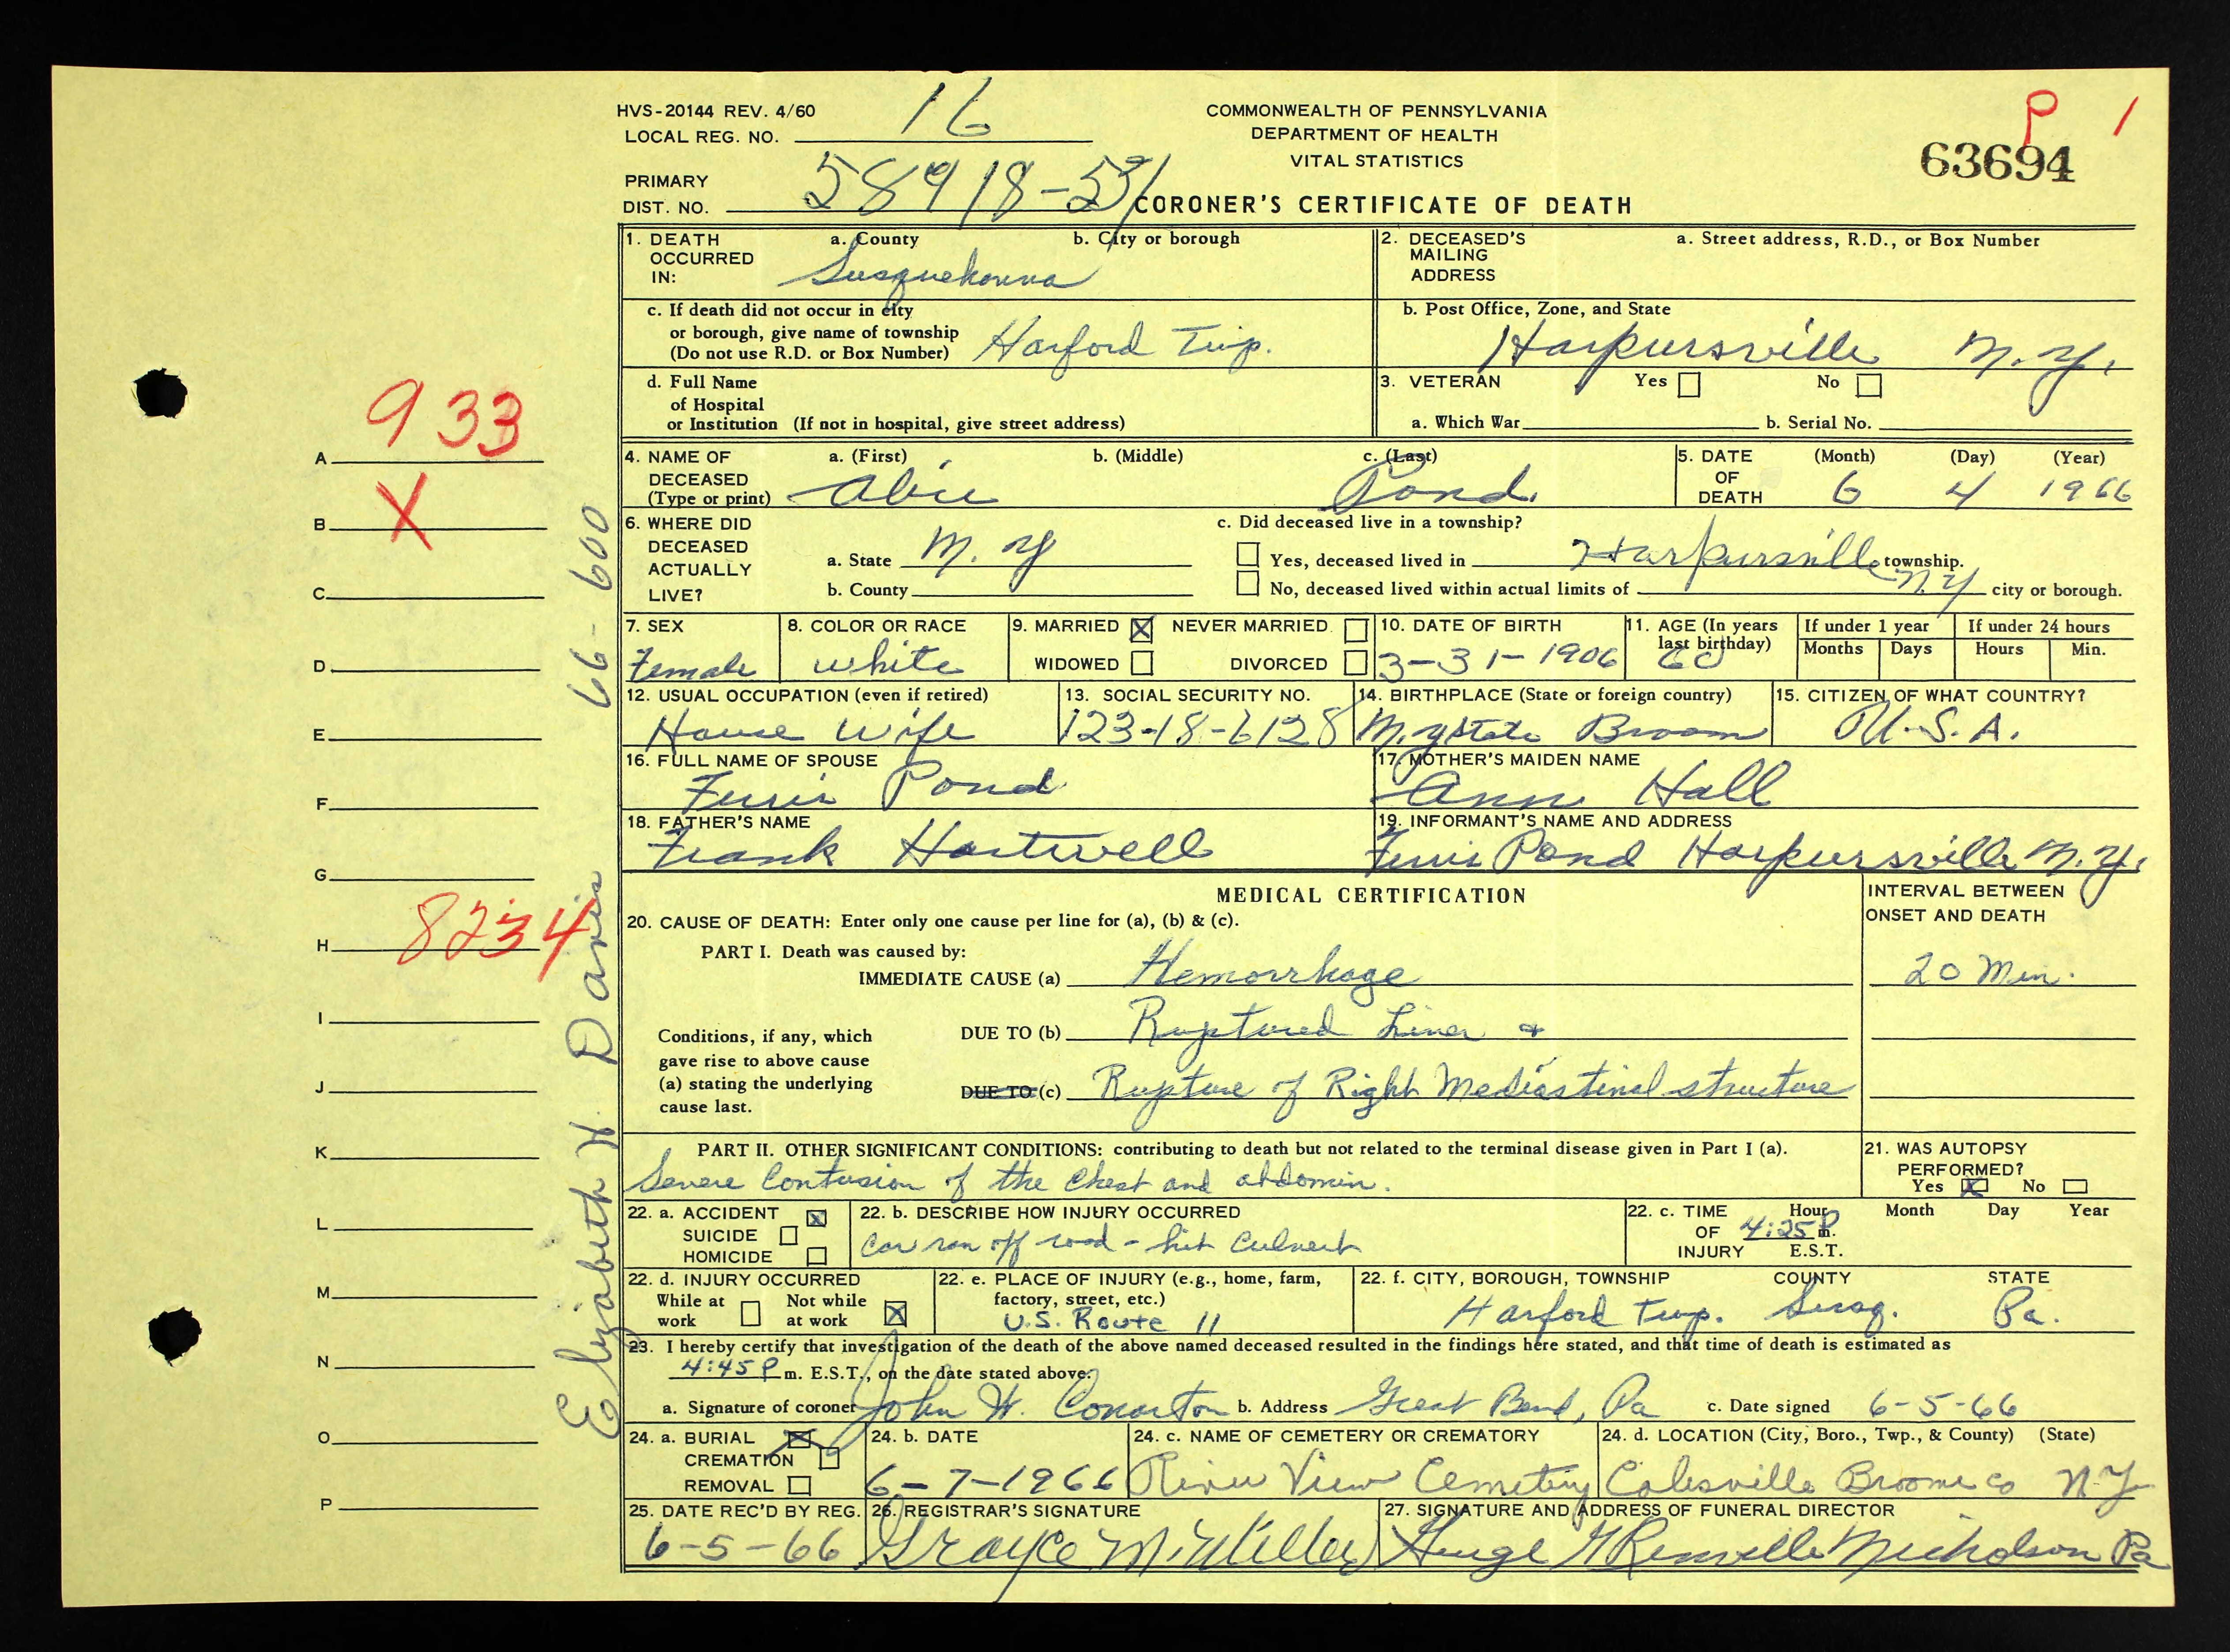 HVS-20144 REV. 4/60
LOCAL REG. NO. 16
COMMONWEALTH OF PENNSYLVANIA
DEPARTMENT OF HEALTH
VITAL STATISTICS
P 1
63694
PRIMARY
DIST. NO. 58918-591
CORONER'S CERTIFICATE OF DEATH
1. DEATH OCCURRED IN: a. County b. City or borough
Susquehanna
2. DECEASED'S MAILING ADDRESS a. Street address, R.D., or Box Number
c. If death did not occur in city
or borough, give name of township
(Do not use R.D. or Box Number) Harford Twp.
b. Post Office, Zone, and State
Harpursville N.Y.
d. Full Name
of Hospital
or Institution (If not in hospital, give street address)
3. VETERAN Yes No
a. Which War b. Serial No.
4. NAME OF DECEASED (Type or print) a. (First) b. (Middle) c. (Last)
Alice Pond
5. DATE OF DEATH (Month) (Day) (Year)
6 4 1966
6. WHERE DID DECEASED ACTUALLY LIVE?
a. State N.Y
b. County
c. Did deceased live in a township?
Yes, deceased lived in Harpursville township.
No, deceased lived within actual limits of N.Y city or borough.
7. SEX
Female
8. COLOR OR RACE
White
9. MARRIED X NEVER MARRIED
WIDOWED DIVORCED
10. DATE OF BIRTH
3-31-1906
11. AGE (In years last birthday)
60
If under 1 year
Months Days
If under 24 hours
Hours Min.
12. USUAL OCCUPATION (even if retired)
House Wife
13. SOCIAL SECURITY NO.
123-18-6128
14. BIRTHPLACE (State or foreign country)
N.Y State Broom
15. CITIZEN OF WHAT COUNTRY?
U.S.A.
16. FULL NAME OF SPOUSE
Ferris Pond
17. MOTHER'S MAIDEN NAME
Ann Hall
18. FATHER'S NAME
Frank Hartwell
19. INFORMANT'S NAME AND ADDRESS
Ferris Pond Harpursville N.Y.
MEDICAL CERTIFICATION
INTERVAL BETWEEN
ONSET AND DEATH
20. CAUSE OF DEATH: Enter only one cause per line for (a), (b) & (c).
PART I. Death was caused by:
IMMEDIATE CAUSE (a) Hemorrhage 20 Min.
Conditions, if any, which
gave rise to above cause
(a) stating the underlying
cause last.
DUE TO (b) Ruptured Liver &
DUE TO (c) Rupture of Right Mediastinal structure
PART II. OTHER SIGNIFICANT CONDITIONS: contributing to death but not related to the terminal disease given in Part I (a).
Severe Contusion of the Chest and abdomin.
21. WAS AUTOPSY
PERFORMED?
Yes X No
22. a. ACCIDENT X
SUICIDE
HOMICIDE
22. b. DESCRIBE HOW INJURY OCCURRED
Car ran off road - hit Culvert
22. c. TIME OF INJURY Hour Month Day Year
4:25 P m.
E.S.T.
22. d. INJURY OCCURRED
While at work Not while at work X
22. e. PLACE OF INJURY (e.g., home, farm,
factory, street, etc.)
U.S. Route 11
22. f. CITY, BOROUGH, TOWNSHIP COUNTY STATE
Harford Twp. Susq. Pa.
23. I hereby certify that investigation of the death of the above named deceased resulted in the findings here stated, and that time of death is estimated as
4:45 P m. E.S.T., on the date stated above.
a. Signature of coroner John H. Conarton b. Address Great Bend, Pa c. Date signed 6-5-66
24. a. BURIAL X
CREMATION
REMOVAL
24. b. DATE
6-7-1966
24. c. NAME OF CEMETERY OR CREMATORY
River View Cemetery
24. d. LOCATION (City, Boro., Twp., & County) (State)
Colesville Broome Co N.Y
25. DATE REC'D BY REG.
6-5-66
26. REGISTRAR'S SIGNATURE
Grayce M. Miller
27. SIGNATURE AND ADDRESS OF FUNERAL DIRECTOR
Nicholson Pa
A 933
B X
C
D
E
F
G
H 8234
I
J
K
L
M
N
O
P
Elizabeth H. Davis 66-600